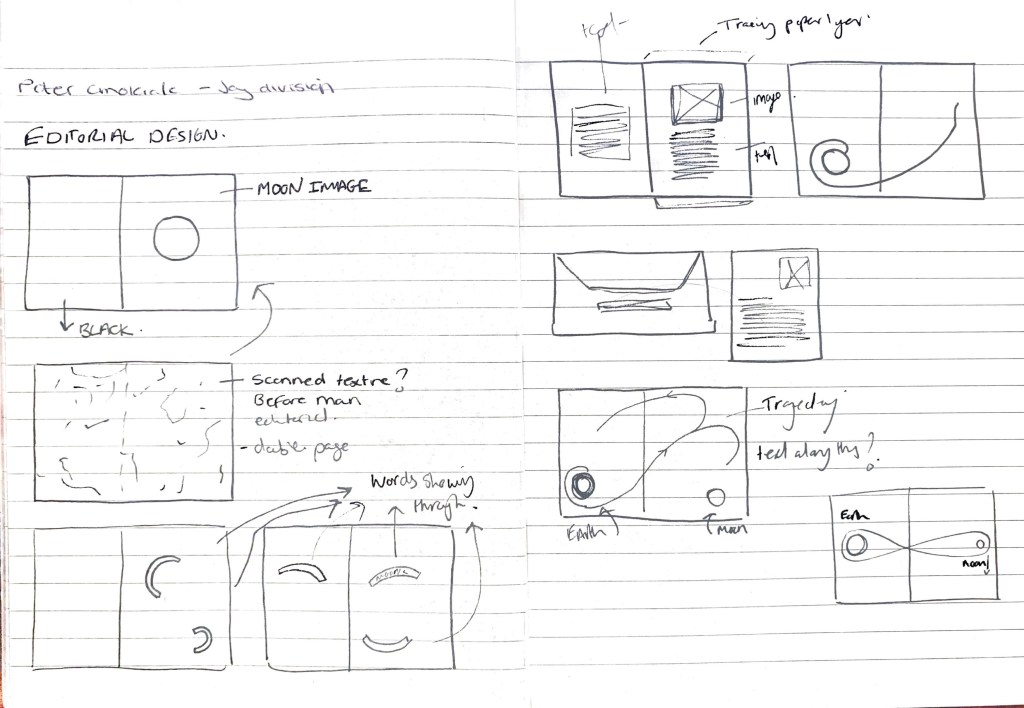 Peter - Joy division
EDITORIAL DESIGN.
MOON IMAGE
BLACK.
Scanned textre?
Before main
editorial.
- double page
Words showing
through.
text
Tracing paper layer.
image
text
Trajectory
text along this?
EARTH
Moon
Earth
moon